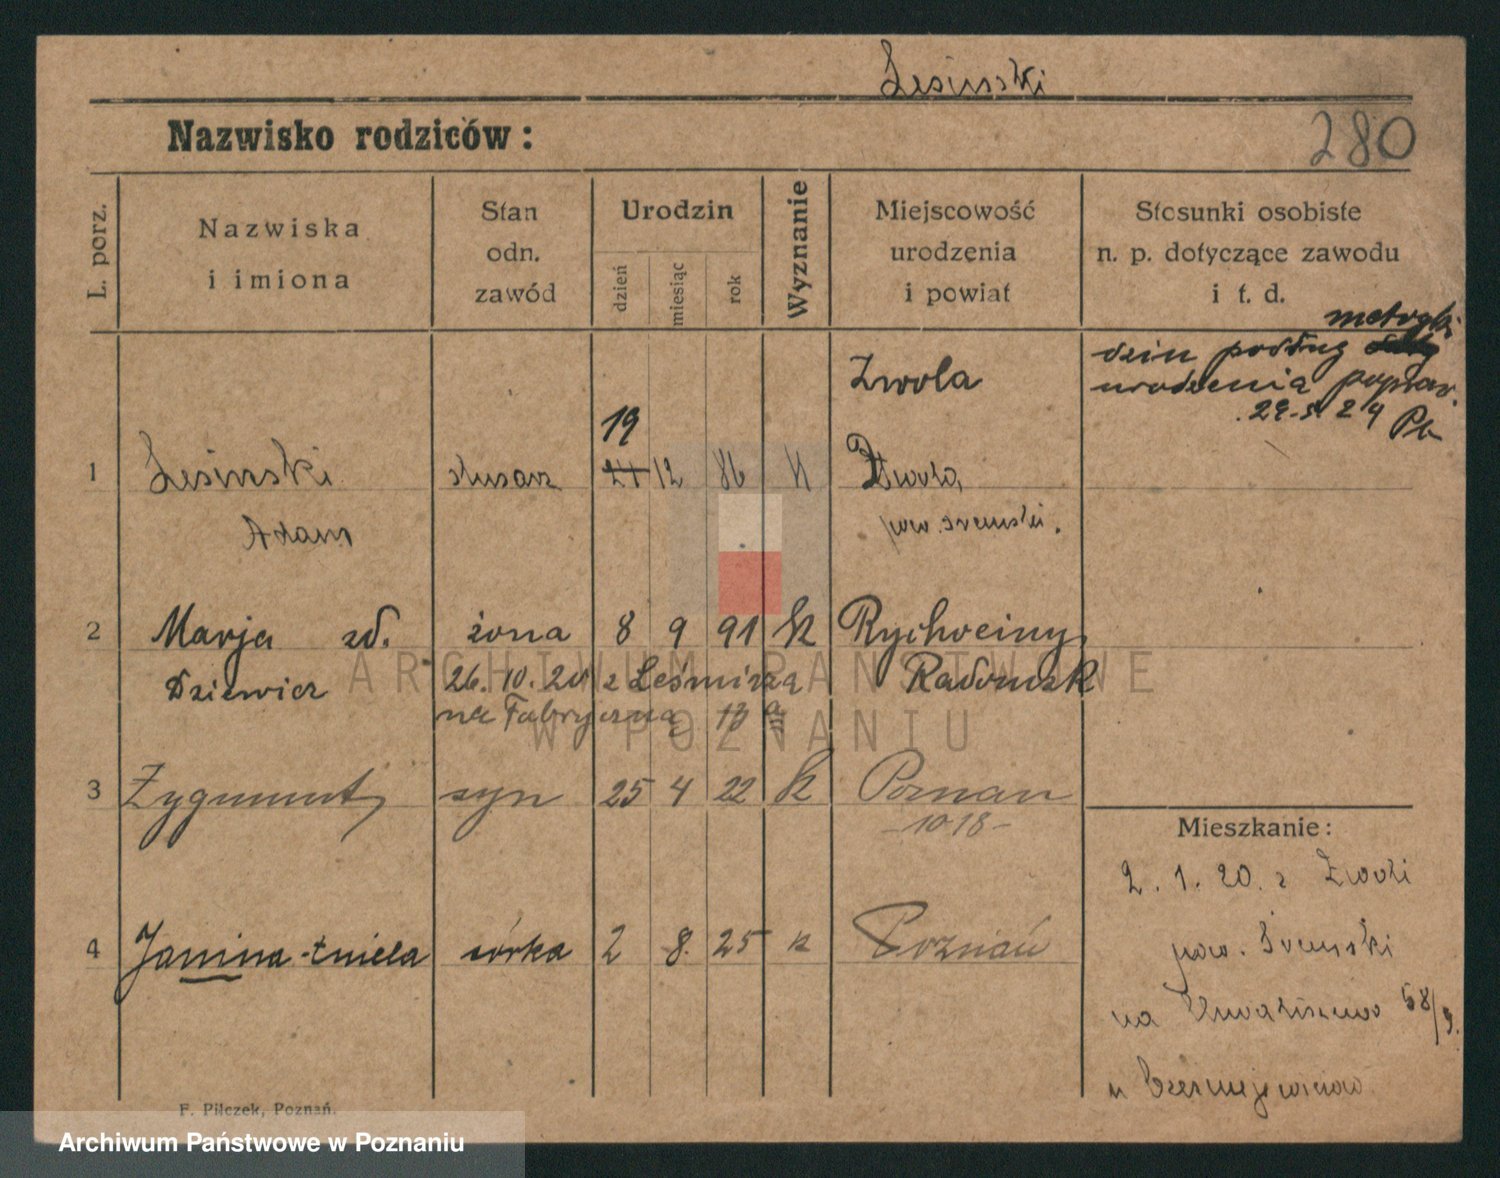 Lesinski
280
Nazwisko rodziców:
L. porz.
Nazwiska
i imiona
Stan
odn.
zawód
Urodzin
dzień
miesiąc
rok
Wyznanie
Miejscowość
urodzenia
i powiat
Stosunki osobiste
n. p. dotyczące zawodu
i t. d.
metryki
dzień podług
urodzenia popraw.
29-5 24 Pb
Zwola
19
1 Lesinski ślusarz 21 12 86 k Zwola,
Adam pow. śremski.
2 Marja zd. żona 8 9 91 k Rychociny
Dziewicz 26.10.20 z Leśmirza Radomsk
na Fabryczną 13 a
3 Zygmunt syn 25 4 22 k Poznan
-1018-
Mieszkanie:
2.1.20. z Zwoli
pow. Śremski
4 Janina-Aniela córka 2 8. 25 k Poznań
na 58/9.
u
F. Pilczek, Poznań.
ARCHIWUM PAŃSTWOWE
W POZNANIU
Archiwum Państwowe w Poznaniu